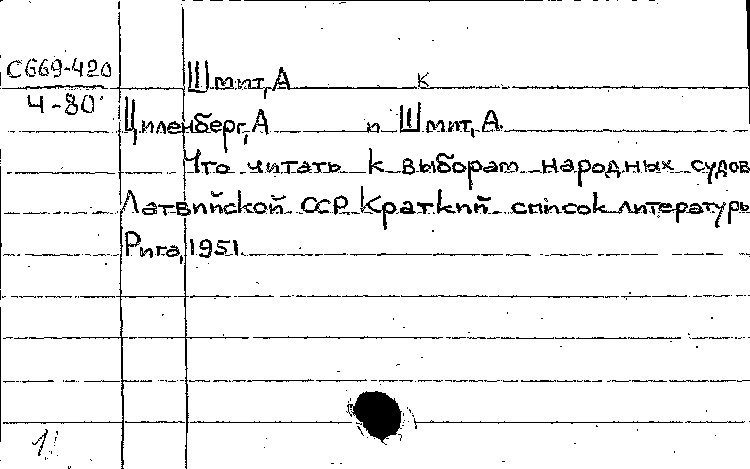 С669-420
Ч-80
Шмит, А к
Циленберг, А и Шмит, А.
Что читать к выборам народных судов
Латвийской ССР Краткий список литературы
Рига, 1951